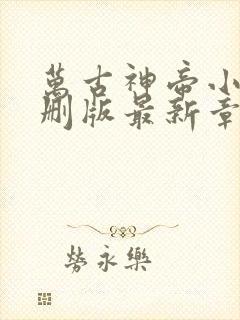 萬古神帝小
刪版最新章
勞永樂